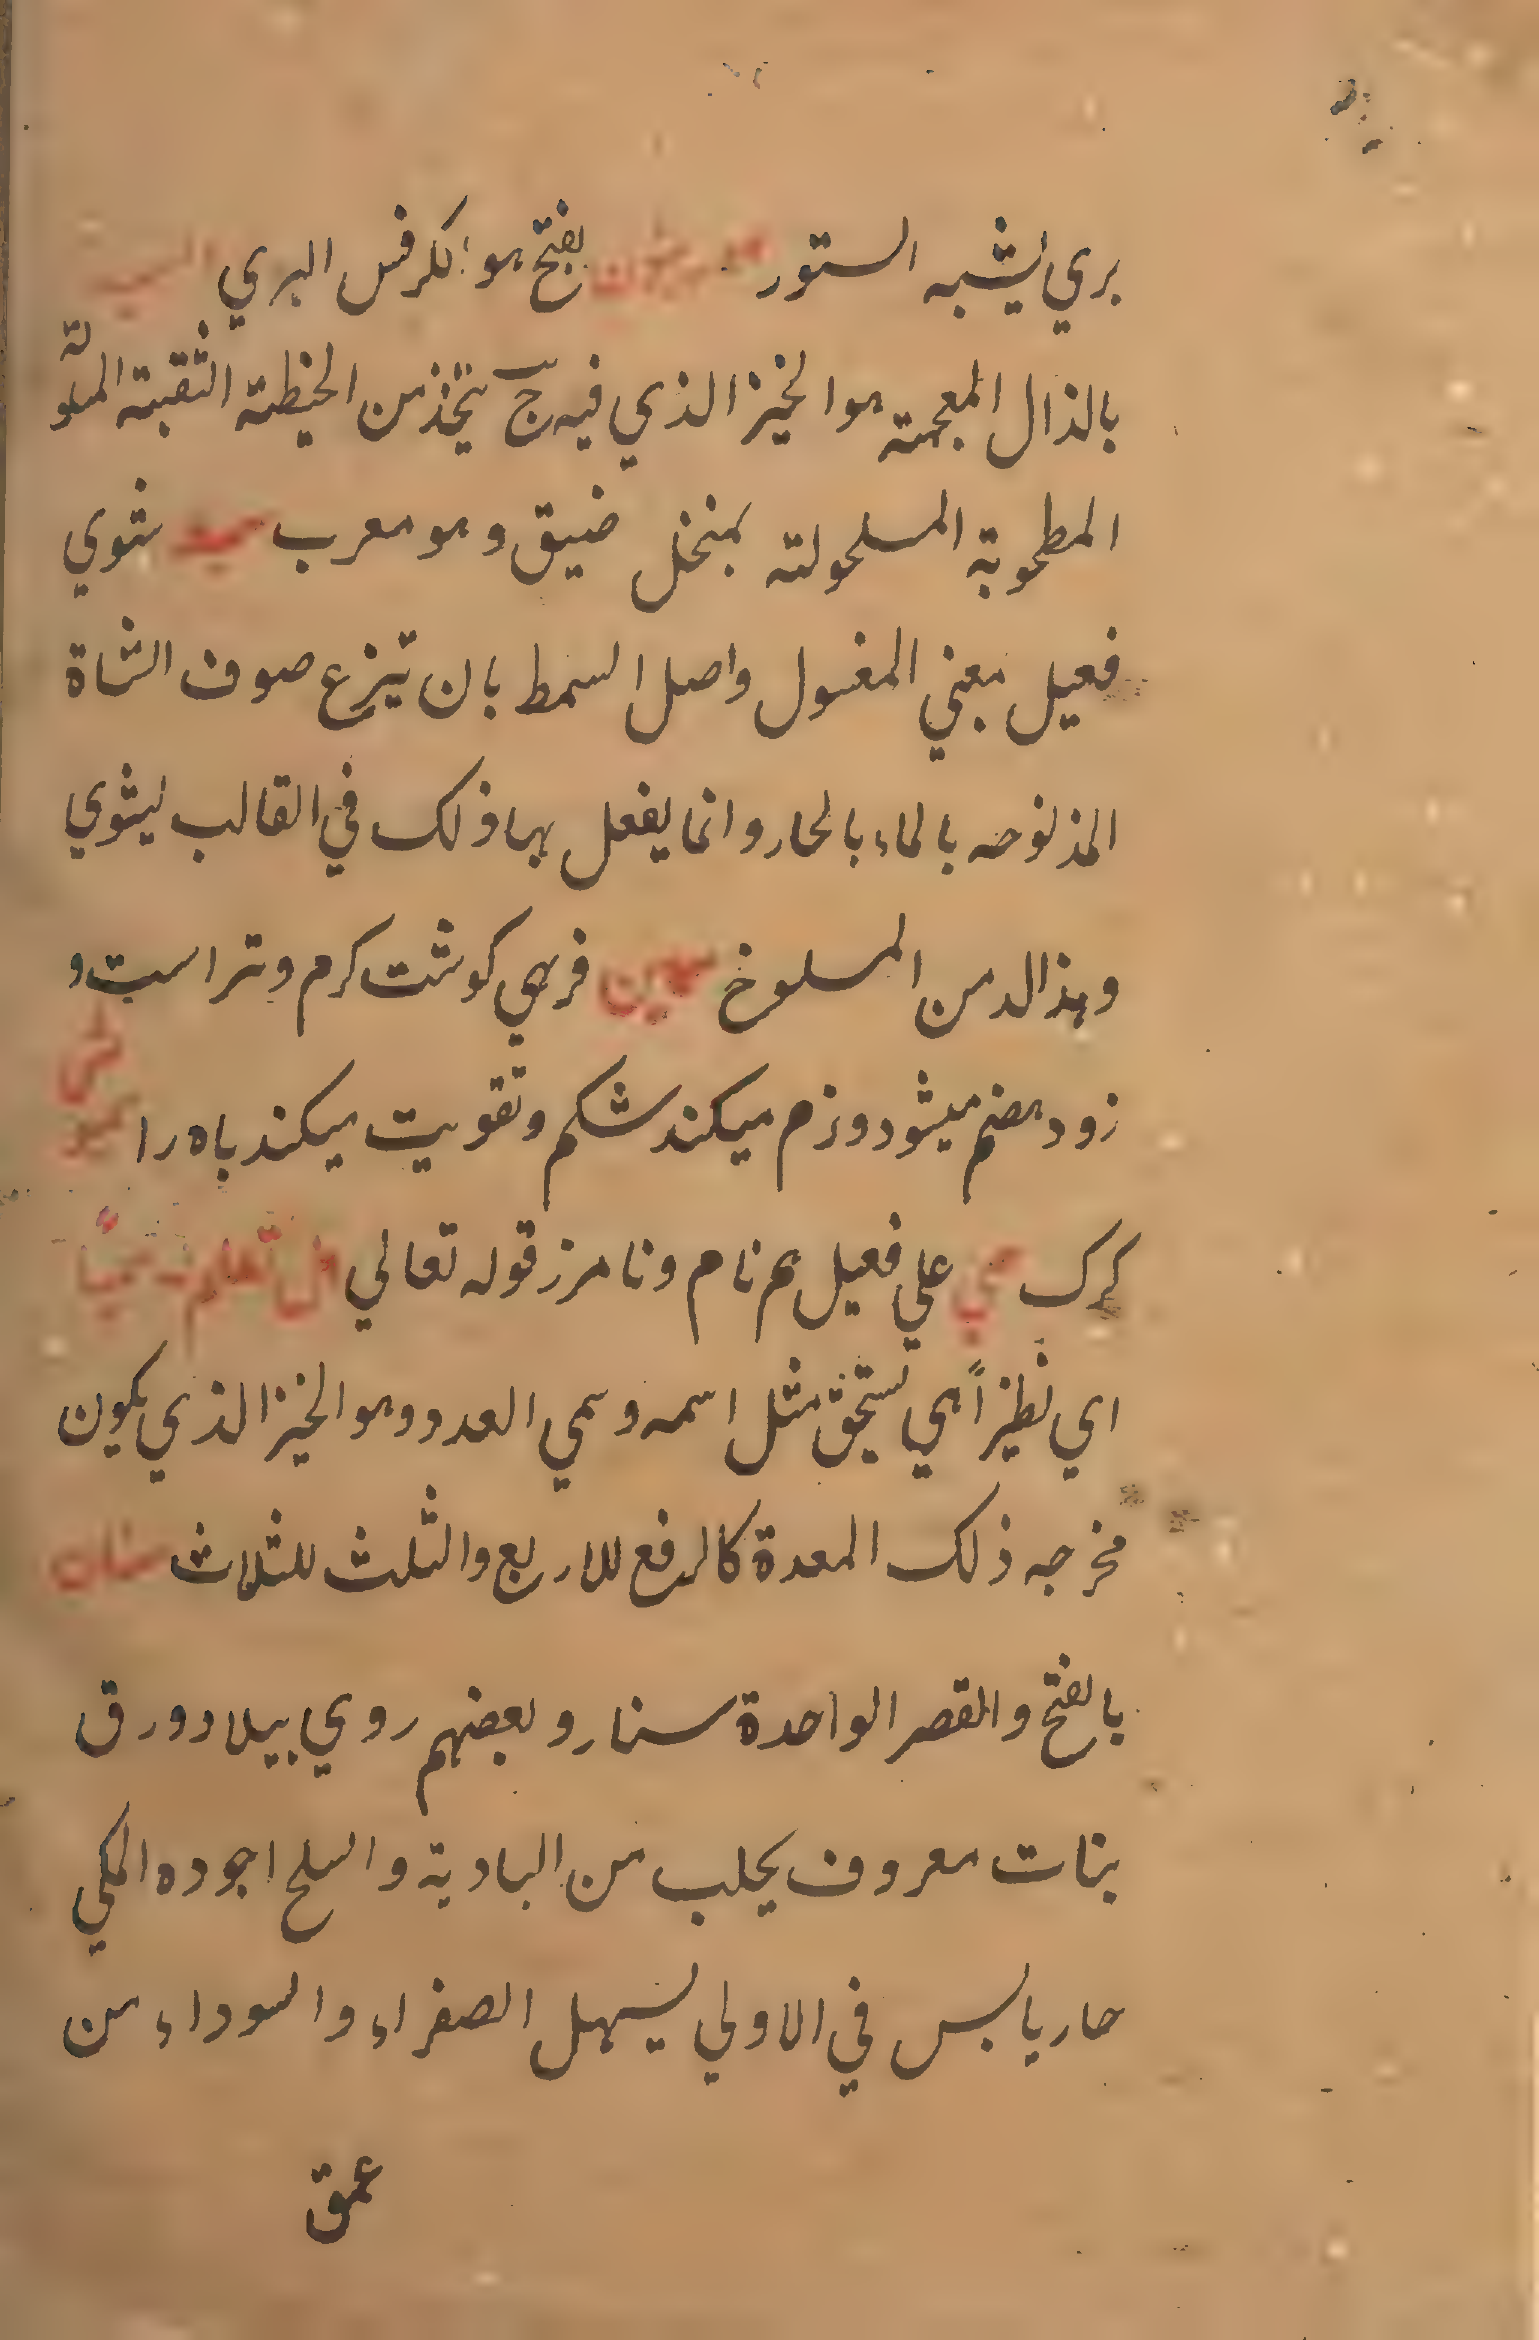 بري يشبه الستور بفتح هو الكرفس البري
بالذال المعجمة هو الخيز الذي فيه ج يتخذ من الخيطة النقبة الملوّلة
المطحوبة المسلحولته بمنخل ضيق و هو معرب سميد شوي
فعيل بمعني المغسول واصل السمط بان تنزع صوف الشاة
المذنوحه بالماء بالحار وانما يفعل بها ذلك في القالب ليشوي
وهذا الد من المسلوخ سمين فربهي كوشت كرم و تر است و
زود هضم ميشود و نرم ميكند شكم و تقويت ميكند باه را
كرك سمي علي فعيل هم نام و نامرز قوله تعالي هل تعلم له سميّا
اي نظيراً هي تستحق مثل اسمه وسمي العدد وهو الخيز الذي يكون
مخرجه ذلك المعدة كالرفع للاربع والثلث للثلاث
بالفتح والقصر الواحدة سنار و بعضهم روي بيلا دورق
بنات معروف يحلب من البادية والسلح اجوده المكي
حار يابس في الاولي يسهل الصفراء والسوداء من
عمق